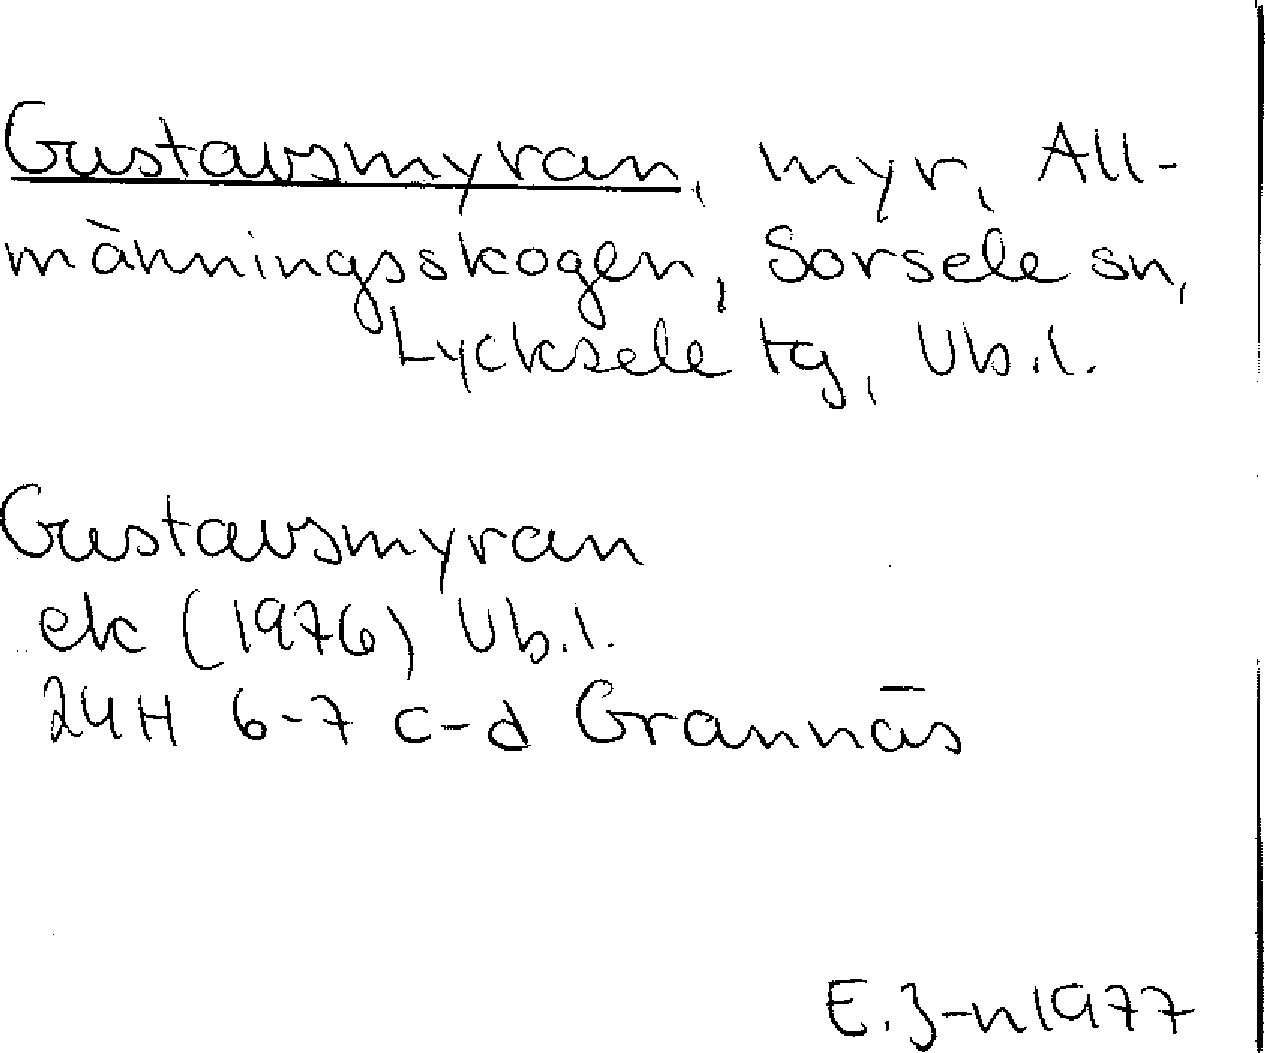 Gustavsmyran, myr, All-
männingsskogen, Sorsele sn,
Lycksele tg, Vb.l.
Gustavsmyran
ek (1976) Vb.l.
24H 6-7 c-d Grannäs
E. J-n 1977